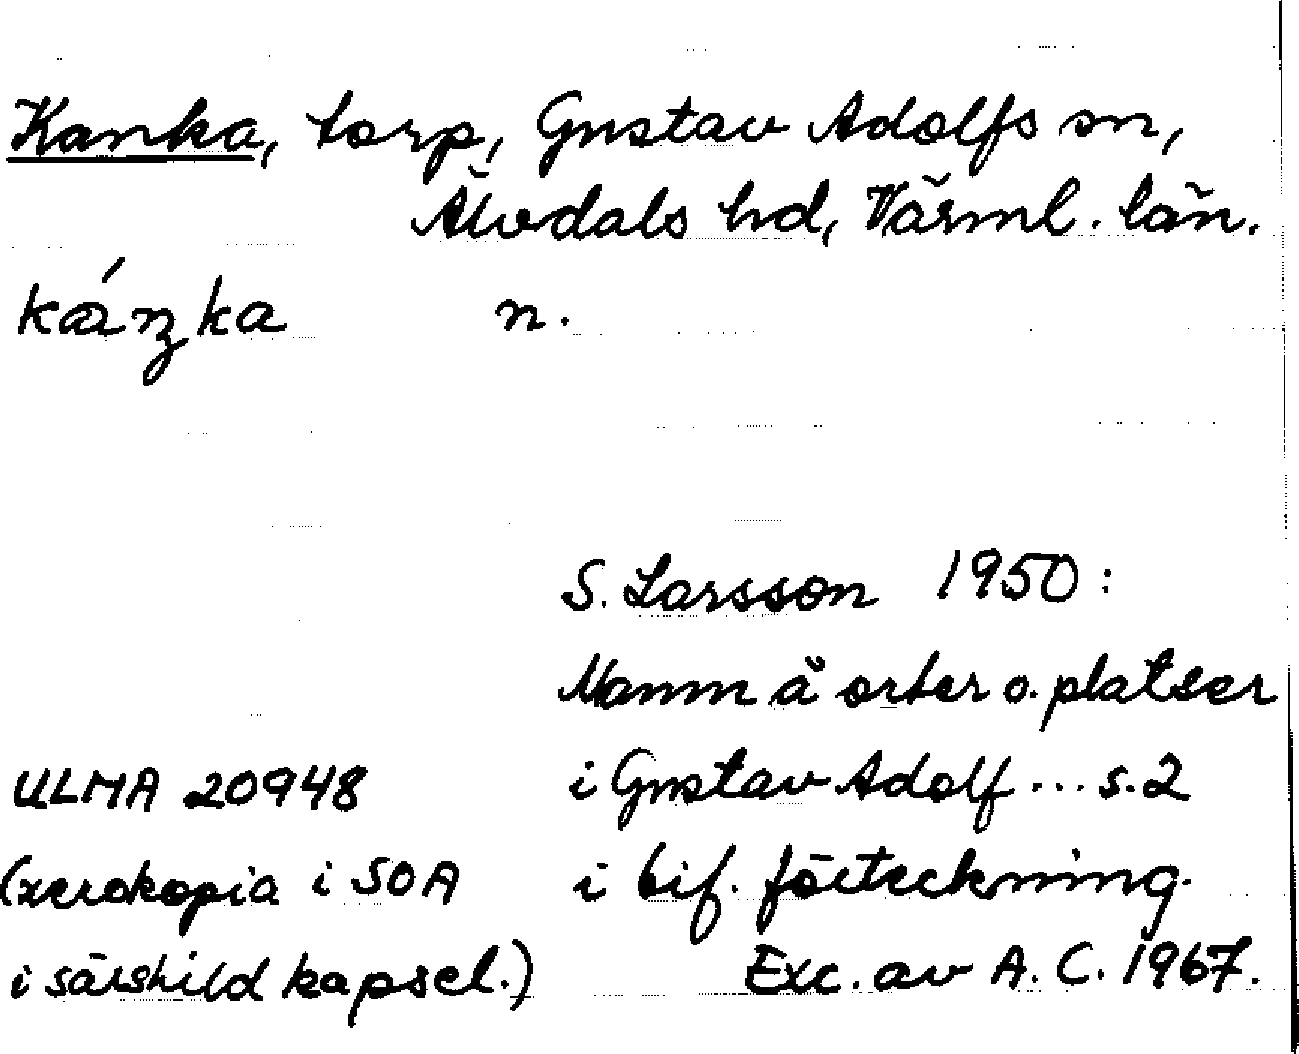 Kanka, torp, Gustav Adolfs sn,
Älvdals hd, Värml. län.
káŋka n.
S. Larsson 1950:
Namn å orter o. platser
ULMA 20948 i Gustav Adolf ... s. 2
(xerokopia i SOA i bif. förteckning.
i särskild kapsel.) Exc. av A. C. 1967.